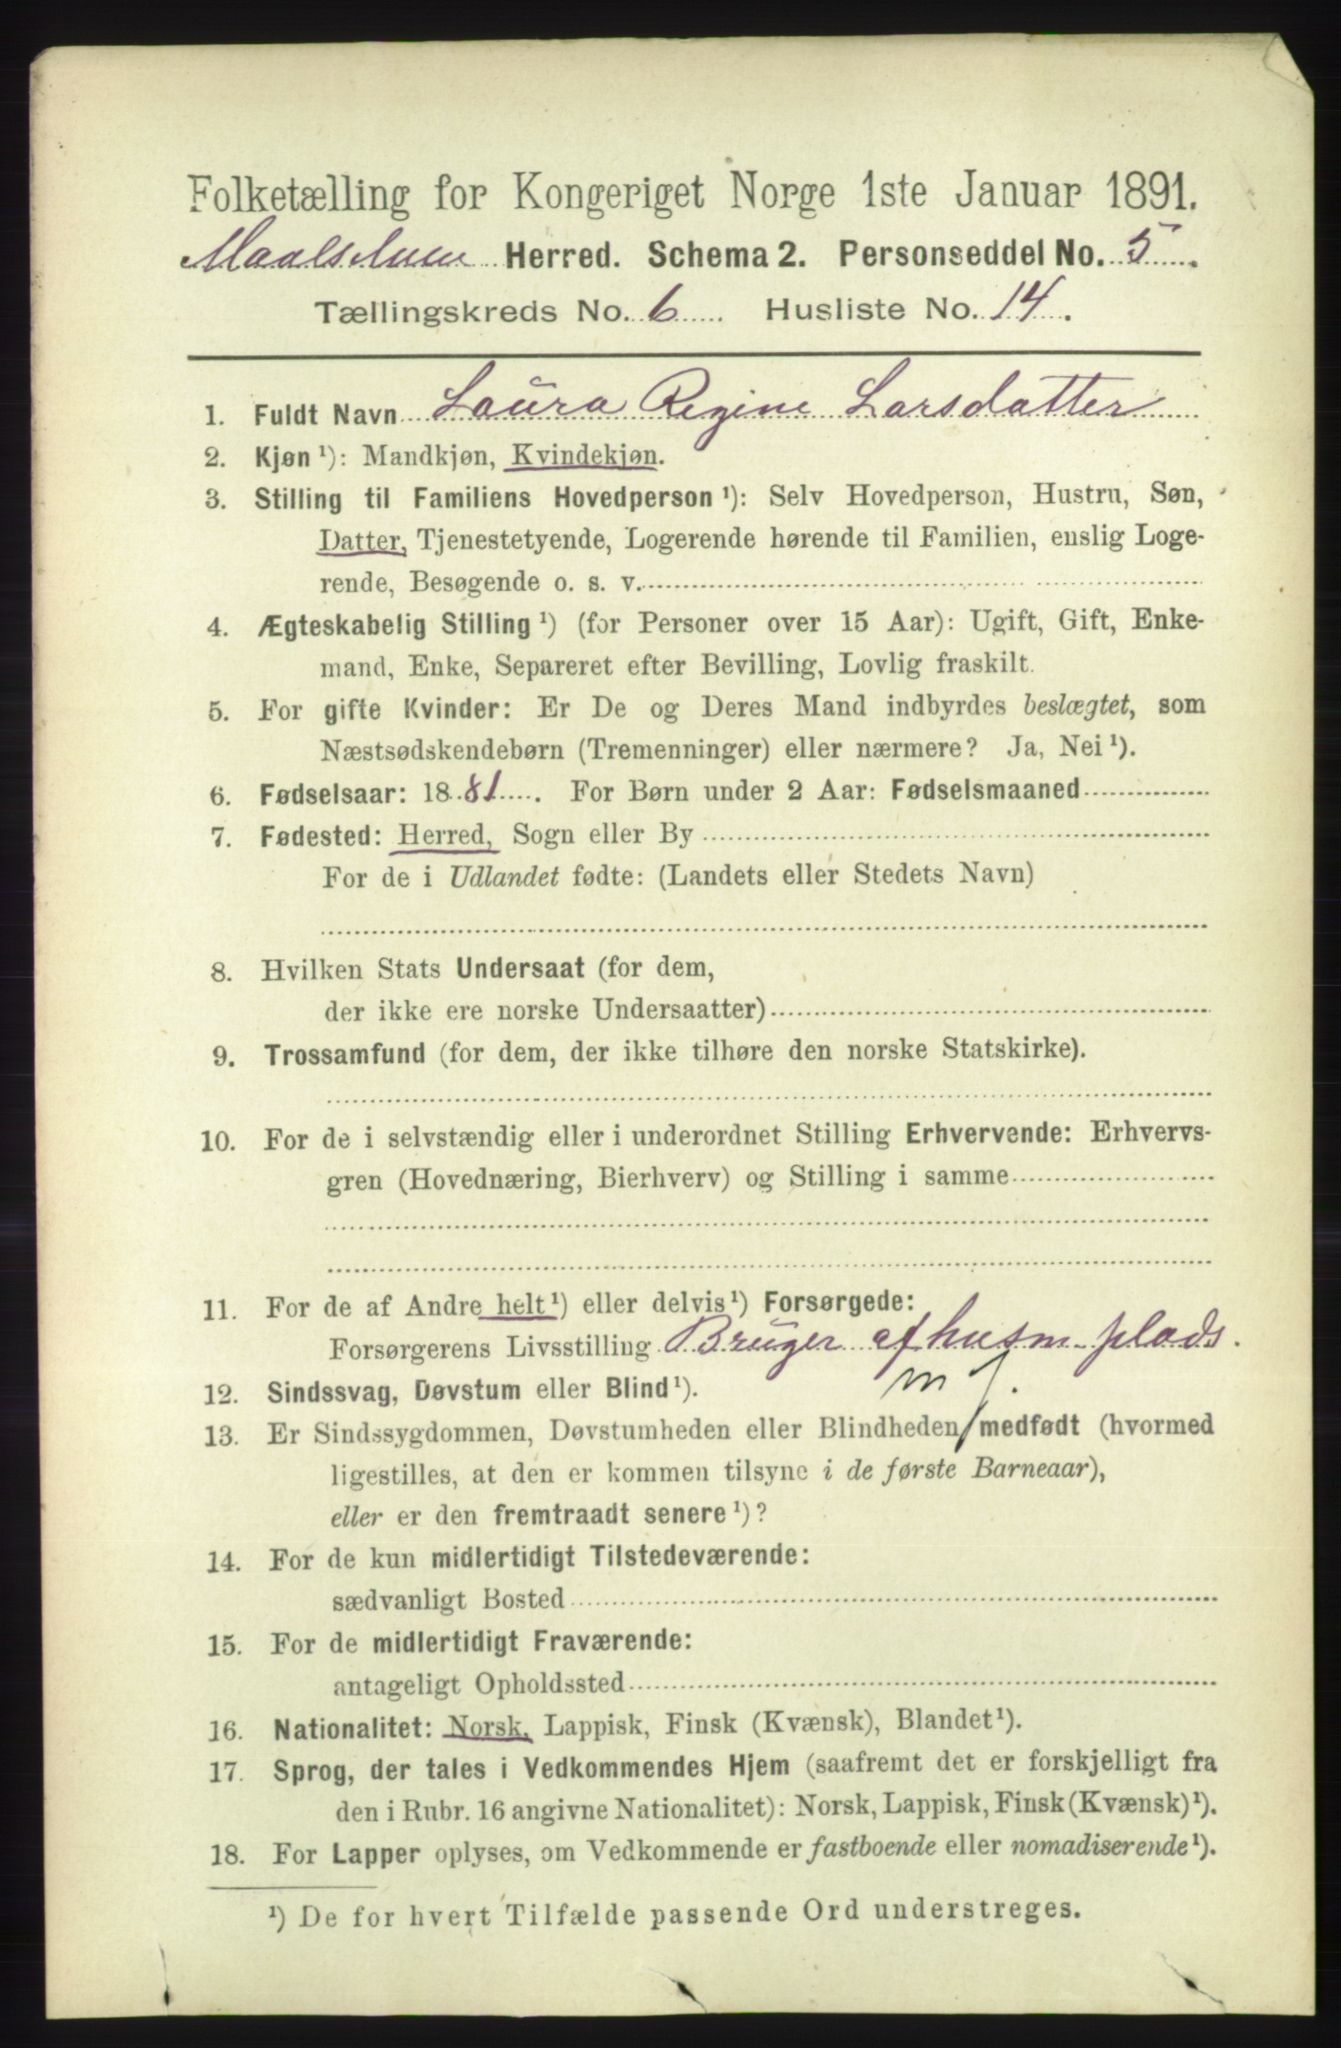 Folketælling for Kongeriget Norge 1ste Januar 1891.
Maalselven Herred. Schema 2. Personseddel No. 5.
Tællingskreds No. 6. Husliste No. 14.
1. Fuldt Navn Laura Regine Larsdatter
2. Kjøn ¹): Mandkjøn, Kvindekjøn.
3. Stilling til Familiens Hovedperson ¹): Selv Hovedperson, Hustru, Søn,
Datter, Tjenestetyende, Logerende hørende til Familien, enslig Loge-
rende, Besøgende o. s. v.
4. Ægteskabelig Stilling ¹) (for Personer over 15 Aar): Ugift, Gift, Enke-
mand, Enke, Separeret efter Bevilling, Lovlig fraskilt.
5. For gifte Kvinder: Er De og Deres Mand indbyrdes beslægtet, som
Næstsødskendebørn (Tremenninger) eller nærmere? Ja, Nei ¹).
6. Fødselsaar: 1881. For Børn under 2 Aar: Fødselsmaaned
7. Fødested: Herred, Sogn eller By
For de i Udlandet fødte: (Landets eller Stedets Navn)
8. Hvilken Stats Undersaat (for dem,
der ikke ere norske Undersaatter)
9. Trossamfund (for dem, der ikke tilhøre den norske Statskirke).
10. For de i selvstændig eller i underordnet Stilling Erhvervende: Erhvervs-
gren (Hovednæring, Bierhverv) og Stilling i samme
11. For de af Andre helt ¹) eller delvis ¹) Forsørgede:
Forsørgerens Livsstilling Bruger af husm. plads.
12. Sindssvag, Døvstum eller Blind ¹). m J.
13. Er Sindssygdommen, Døvstumheden eller Blindheden medfødt (hvormed
ligestilles, at den er kommen tilsyne i de første Barneaar),
eller er den fremtraadt senere ¹)?
14. For de kun midlertidigt Tilstedeværende:
sædvanligt Bosted
15. For de midlertidigt Fraværende:
antageligt Opholdssted
16. Nationalitet: Norsk, Lappisk, Finsk (Kvænsk), Blandet ¹).
17. Sprog, der tales i Vedkommendes Hjem (saafremt det er forskjelligt fra
den i Rubr. 16 angivne Nationalitet): Norsk, Lappisk, Finsk (Kvænsk) ¹).
18. For Lapper oplyses, om Vedkommende er fastboende eller nomadiserende ¹).
¹) De for hvert Tilfælde passende Ord understreges.